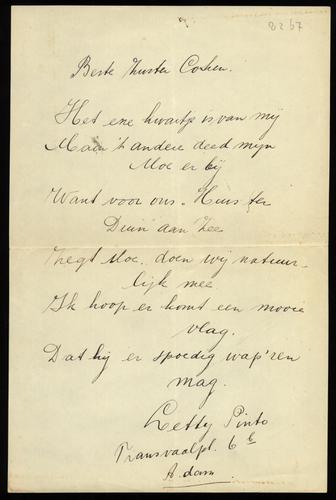 8267
Beste Zuster Cohen.
Het ene kwartje is van mij
Maar 't andere deed mijn
Moe er bij
Want voor ons "Huis ter
Duin" aan Zee
Zegt Moe, doen wij natuur-
lijk mee
Ik hoop er komt een mooie
vlag.
Dat hij er spoedig wap'ren
mag.
Letty Pinto
Transvaalpl. 6
A.dam.